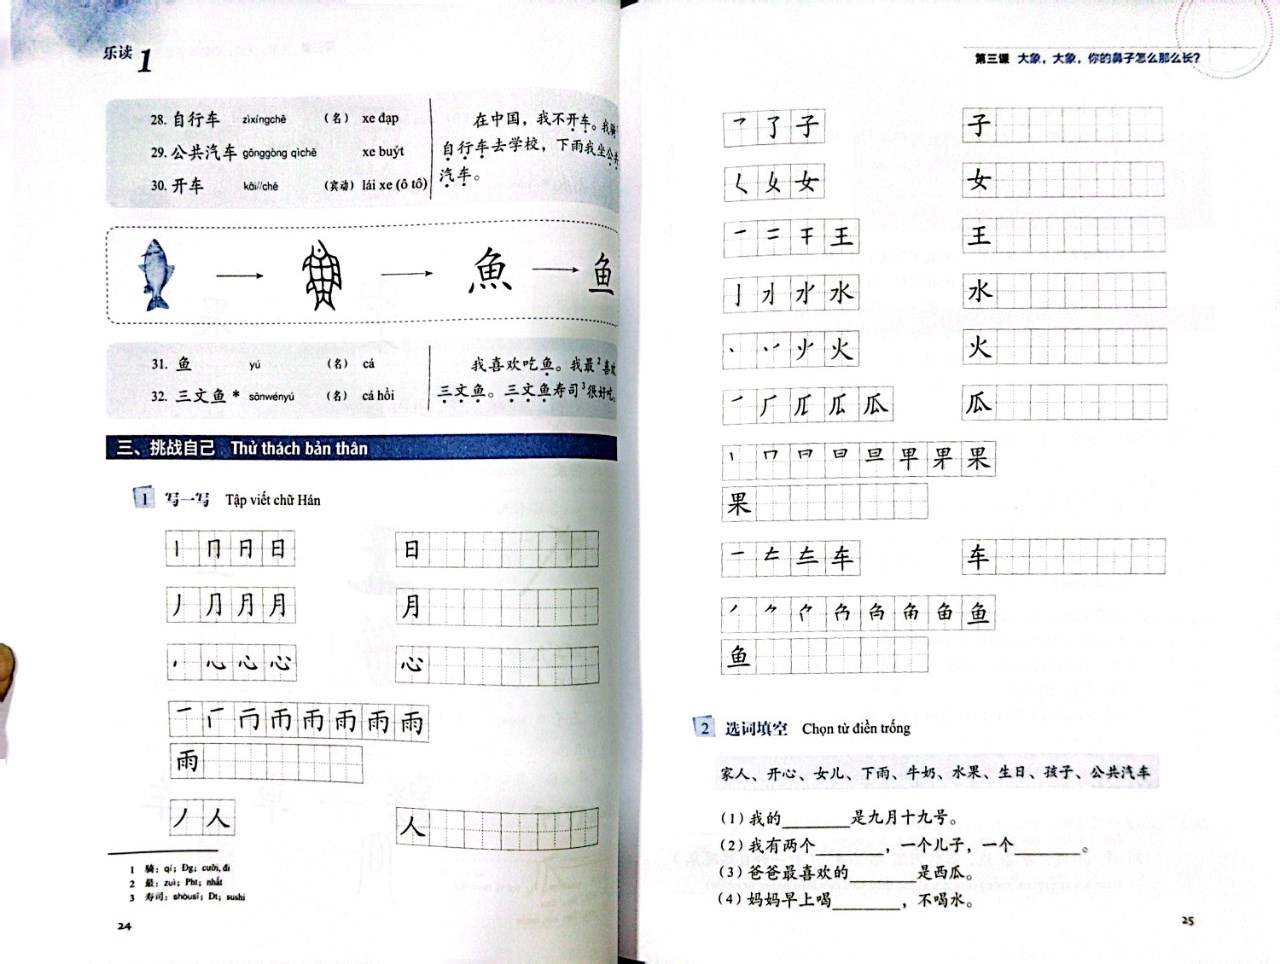 乐读 1
28. 自行车 zìxíngchē （名） xe đạp
29. 公共汽车 gōnggòng qìchē xe buýt
30. 开车 kāi//chē （宾动） lái xe (ô tô)
在中国，我不开车。我骑
自行车去学校，下雨我坐公共
汽车。
魚 鱼
31. 鱼 yú （名） cá
32. 三文鱼 * sānwényú （名） cá hồi
我喜欢吃鱼。我最²喜欢
三文鱼。三文鱼寿司³很好吃。
三、挑战自己 Thử thách bản thân
1 写一写 Tập viết chữ Hán
日 日
月 月
心 心
雨
雨
人 人
1 骑：qí；Đg；cưỡi, đi
2 最：zuì；Pht；nhất
3 寿司：shòusī；Dt；sushi
24
第三课 大象，大象，你的鼻子怎么那么长？
了 子 子
女 女
一 二 干 王 王
水 水
火 火
瓜 瓜
果
果
车 车
鱼
鱼
2 选词填空 Chọn từ điền trống
家人、开心、女儿、下雨、牛奶、水果、生日、孩子、公共汽车
（1）我的________是九月十九号。
（2）我有两个________，一个儿子，一个________。
（3）爸爸最喜欢的________是西瓜。
（4）妈妈早上喝________，不喝水。
25